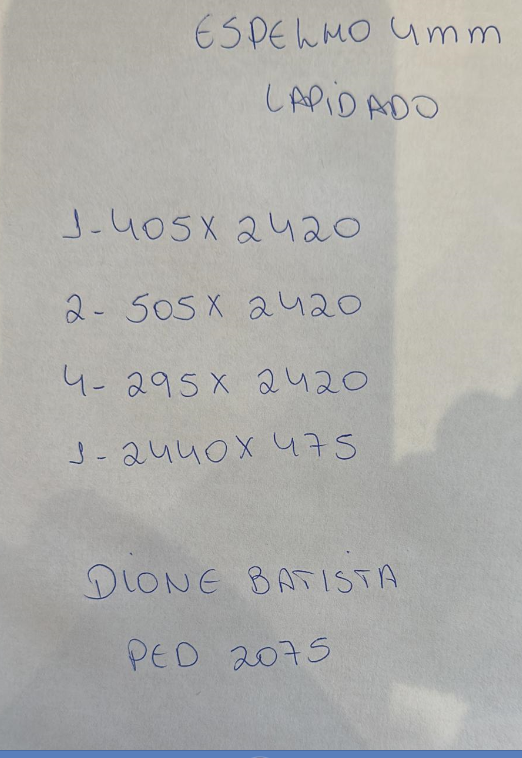 ESPELHO 4mm
LAPIDADO
1-405X 2420
2- 505X 2420
4- 295X 2420
1-2440X 475
DIONE BATISTA
PED 2075